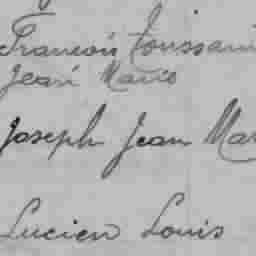 François Toussain
Jean Marie
Joseph Jean Mar
Lucien Louis